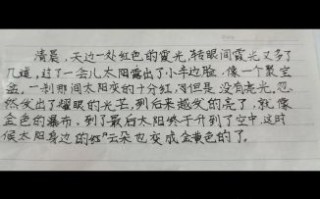 清晨，天边一处红色的霞光，转眼间霞光又多了
几道，过了一会儿太阳露出了小半边脸，像一个聚宝
盆，一刹那间太阳变的十分红，但是没有亮光，忽
然发出了耀眼的光芒，到后来越发的亮了，就像
金色的瀑布，到了最后太阳终于升到了空中，这时
候太阳身边的红"云朵也变成金黄色的了。